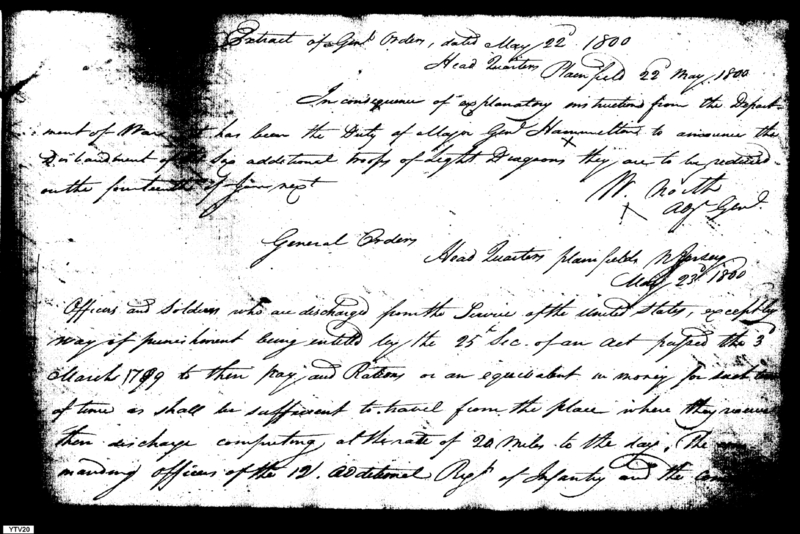 Extract of Genl Orders, dated May 22d 1800
Head Quarters Plainfield 22d May 1800
In consequence of explanatory instructions from the Depart-
ment of War it has been the Duty of Major Genl Hammelton to announce the
Disbandment of the Six additional troops of Light Dragoons they are to be reduced
on the fourteenth of June next
W. North
Adjt Genl.
General Orders
Head Quarters plainfields N Jersey
May 23d 1800
Officers and Soldiers who are discharged from the Service of the United States, except by
way of punishment being entitled by the 25th Sec. of an act passed the 3d
March 1799 to their pay and Rations or an equivalent in money for such
of time as shall be sufficient to travel from the place where they receive
their discharge computing at the rate of 20 miles to the day. The
manding officers of the 12 additional Regts of Infantry and the
YTV20